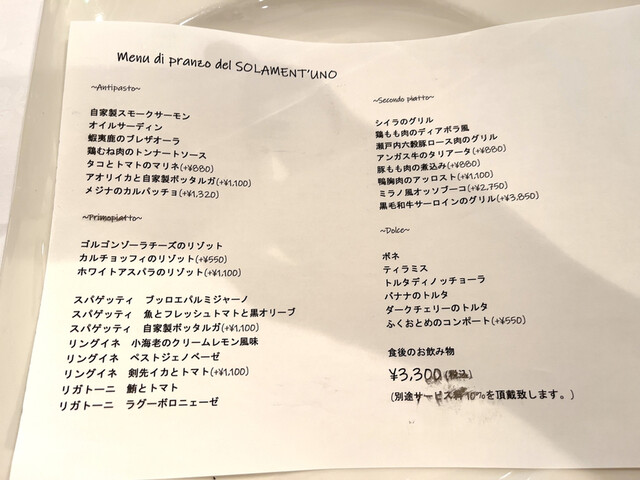 Menu di pranzo del SOLAMENT'UNO
~Antipasto~
自家製スモークサーモン
オイルサーディン
蝦夷鹿のブレザオーラ
鶏むね肉のトンナートソース
タコとトマトのマリネ(+¥880)
アオリイカと自家製ボッタルガ(+¥1,100)
メジナのカルパッチョ(+¥1,320)
~Primopiatto~
ゴルゴンゾーラチーズのリゾット
カルチョッフィのリゾット(+¥550)
ホワイトアスパラのリゾット(+¥1,100)
スパゲッティ ブッロエパルミジャーノ
スパゲッティ 魚とフレッシュトマトと黒オリーブ
スパゲッティ 自家製ボッタルガ(+¥1,100)
リングイネ 小海老のクリームレモン風味
リングイネ ペストジェノベーゼ
リングイネ 剣先イカとトマト(+¥1,100)
リガトーニ 鮪とトマト
リガトーニ ラグーボロニェーゼ
~Secondo piatto~
シイラのグリル
鶏もも肉のディアボラ風
瀬戸内六穀豚ロース肉のグリル
アンガス牛のタリアータ(+¥880)
豚もも肉の煮込み(+¥880)
鴨胸肉のアッロスト(+¥1,100)
ミラノ風オッソブーコ(+¥2,750)
黒毛和牛サーロインのグリル(+¥3,850)
~Dolce~
ボネ
ティラミス
トルタディノッチョーラ
バナナのトルタ
ダークチェリーのトルタ
ふくおとめのコンポート(+¥550)
食後のお飲み物
¥3,300(税込)
(別途サービス料10%を頂戴致します。)